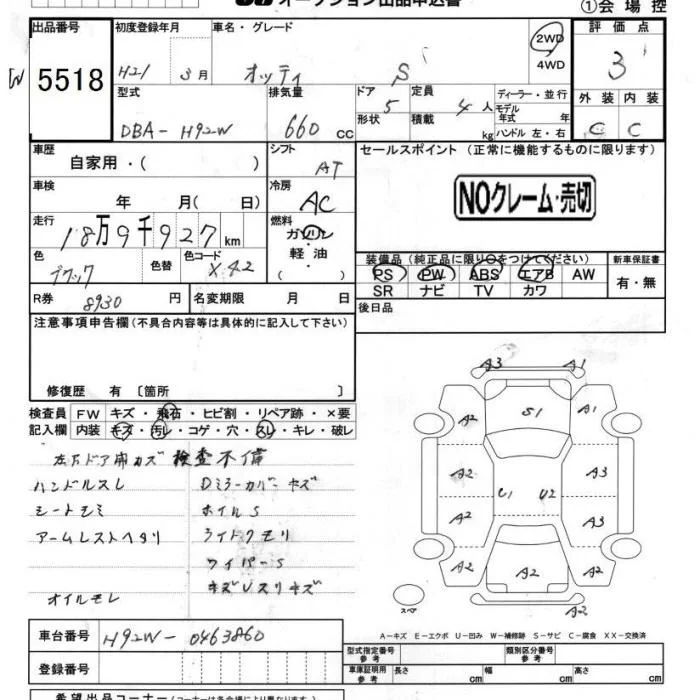 オークション出品申込書
①会場控
出品番号 初度登録年月 車名・グレード 評価点
W 5518 H21 3月 オッティ S 2WD 4WD 3
型式 排気量 ドア 5 形状 定員 4人 積載 kg ディーラー・並行 モデル年式 年 ハンドル左・右 外装 内装
DBA-H92W 660 CC C C
車歴 シフト セールスポイント (正常に機能するものに限ります)
自家用・( ) AT
車検 冷房 NOクレーム・売切
年 月( 日) AC
走行 燃料
18万9千927km ガソリン
軽油
・( )
色 色替 色コード 装備品 (純正品に限り○をつけてください) 新車保証書
ブラック X42 PS PW ABS エアB AW 有・無
SR ナビ TV カワ
R券 8930 円 名変期限 月 日 後日品
注意事項申告欄(不具合内容等は具体的に記入して下さい)
修復歴 有 〔箇所 〕
検査員 FW キズ・飛石・ヒビ割・リペア跡・×要
記入欄 内装 キズ・汚レ・コゲ・穴・スレ・キレ・破レ
検査不備
ハンドルスレ Dミラーカバーキズ
シートシミ ホイルS
アームレストヘタリ ライトクモリ
ワイパーS
キズUスリキズ
オイルモレ
A3 A1
A2 S1 A1
A2 A3
U1 U2
A2 A3
A2 A2 A2
スペア A2
A-キズ E-エクボ U-凹み W-補修跡 S-サビ C-腐食 XX-交換済
車台番号 H92W-0463860
型式指定番号 参考 類別区分番号 参考
登録番号 車庫証明用 参考 長さ cm 幅 cm 高さ cm
希望出品コーナー(コーナーは各会場により異なります)